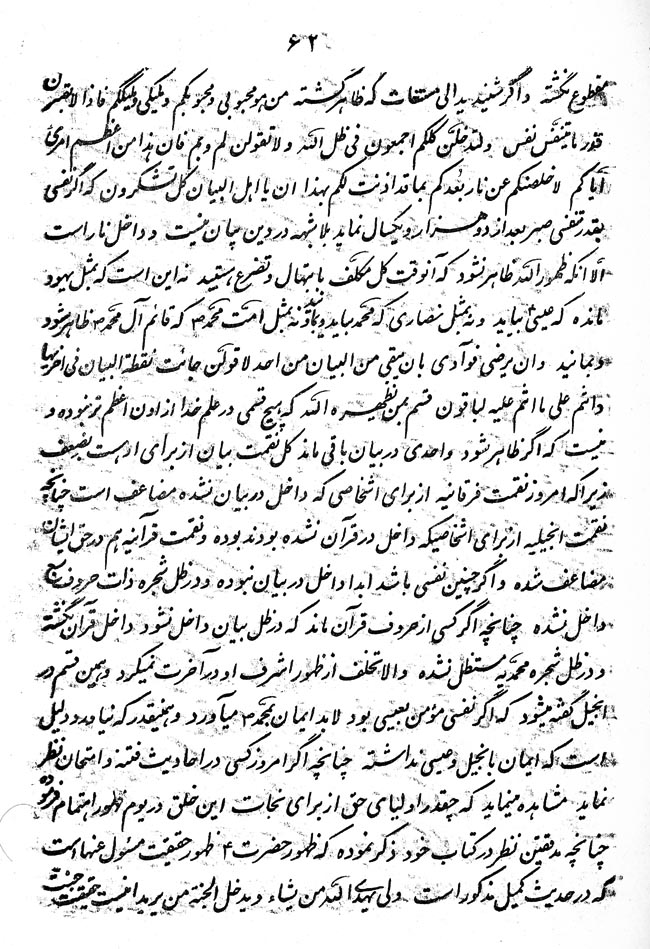 ۶۲
مقطوع نگشته و اگر شنیدید الی مستغاث که ظاهر گشته من هو محبوبی و محبوبکم و ملیکی و ملیککم فاذا لا تصبرن
قدر ما یتنفس نفس و لتدخلن کلکم اجمعون فی ظل الله و لا تقولن لم و بم فان هذا من اعظم امری
ایاکم لاخلصنکم عن نار بعدکم بما قد اذنت لکم بهذا ان یا اهل البیان کل تشکرون که اگر نفسی
بقدر تنفسی صبر بعد از دو هزار و یکسال نماید بلا شبهه در دین بیان نیست و داخل نار است
الا آنکه ظهور الله ظاهر نشود که آنوقت کل مکلف بابتهال و تضرع هستید نه این است که بمثل یهود
مانده که عیسی بیاید و نه بمثل نصاری که محمد بیاید و نه بمثل امت محمد ص که قائم آل محمد ص ظاهر شود
و بمانید و ان یرضی فوآدی بان یبقی من البیان من احد لاقولن جائت نقطة البیان فی اخریها
و انتم علی ما انتم علیه لباقون قسم بمن یظهره الله که هیچ قسمی در علم خدا از اون اعظم تر نبوده و
نیست که اگر ظاهر شود و احدی در بیان باقی ماند کل نقمت بیان از برای او است بضعف
زیرا که امروز نقمت فرقانیه از برای اشخاصی که داخل در بیان نشده مضاعف است چنانچه
نقمت انجیلیه از برای اشخاصیکه داخل در قرآن نشده بودند بوده و نقمت قرآنیه هم در حق ایشان
مضاعف شده و اگر چنین نفسی باشد ابدا داخل در بیان نبوده و در ظل شجره ذات حروف سبع
داخل نشده چنانچه اگر کسی از حروف قرآن ماند که در ظل بیان داخل نشود داخل قرآن نگشته
و در ظل شجره محمدیه مستظل نشده و الا تخلف از ظهور اشرف او در آخرت نمیکرد و همین قسم در
انجیل گفته میشود که اگر نفسی مؤمن بعیسی بود لابد ایمان بمحمد ص میآورد و همینقدر که نیاورد دلیل
است که ایمان بانجیل و عیسی نداشته چنانچه اگر امروز کسی در احادیث فتنه و امتحان نظر
نماید مشاهده مینماید که چقدر اولیای حق از برای نجات این خلق در یوم ظهور اهتمام فرموده
چنانچه مدققین نظر در کتاب خود ذکر نموده که ظهور حضرت ع ظهور حقیقت مسئول عنها است
که در حدیث کمیل مذکور است ولی یهدی الله من یشاء و یدخل الجنة من یرید اینست حقیقت جنت